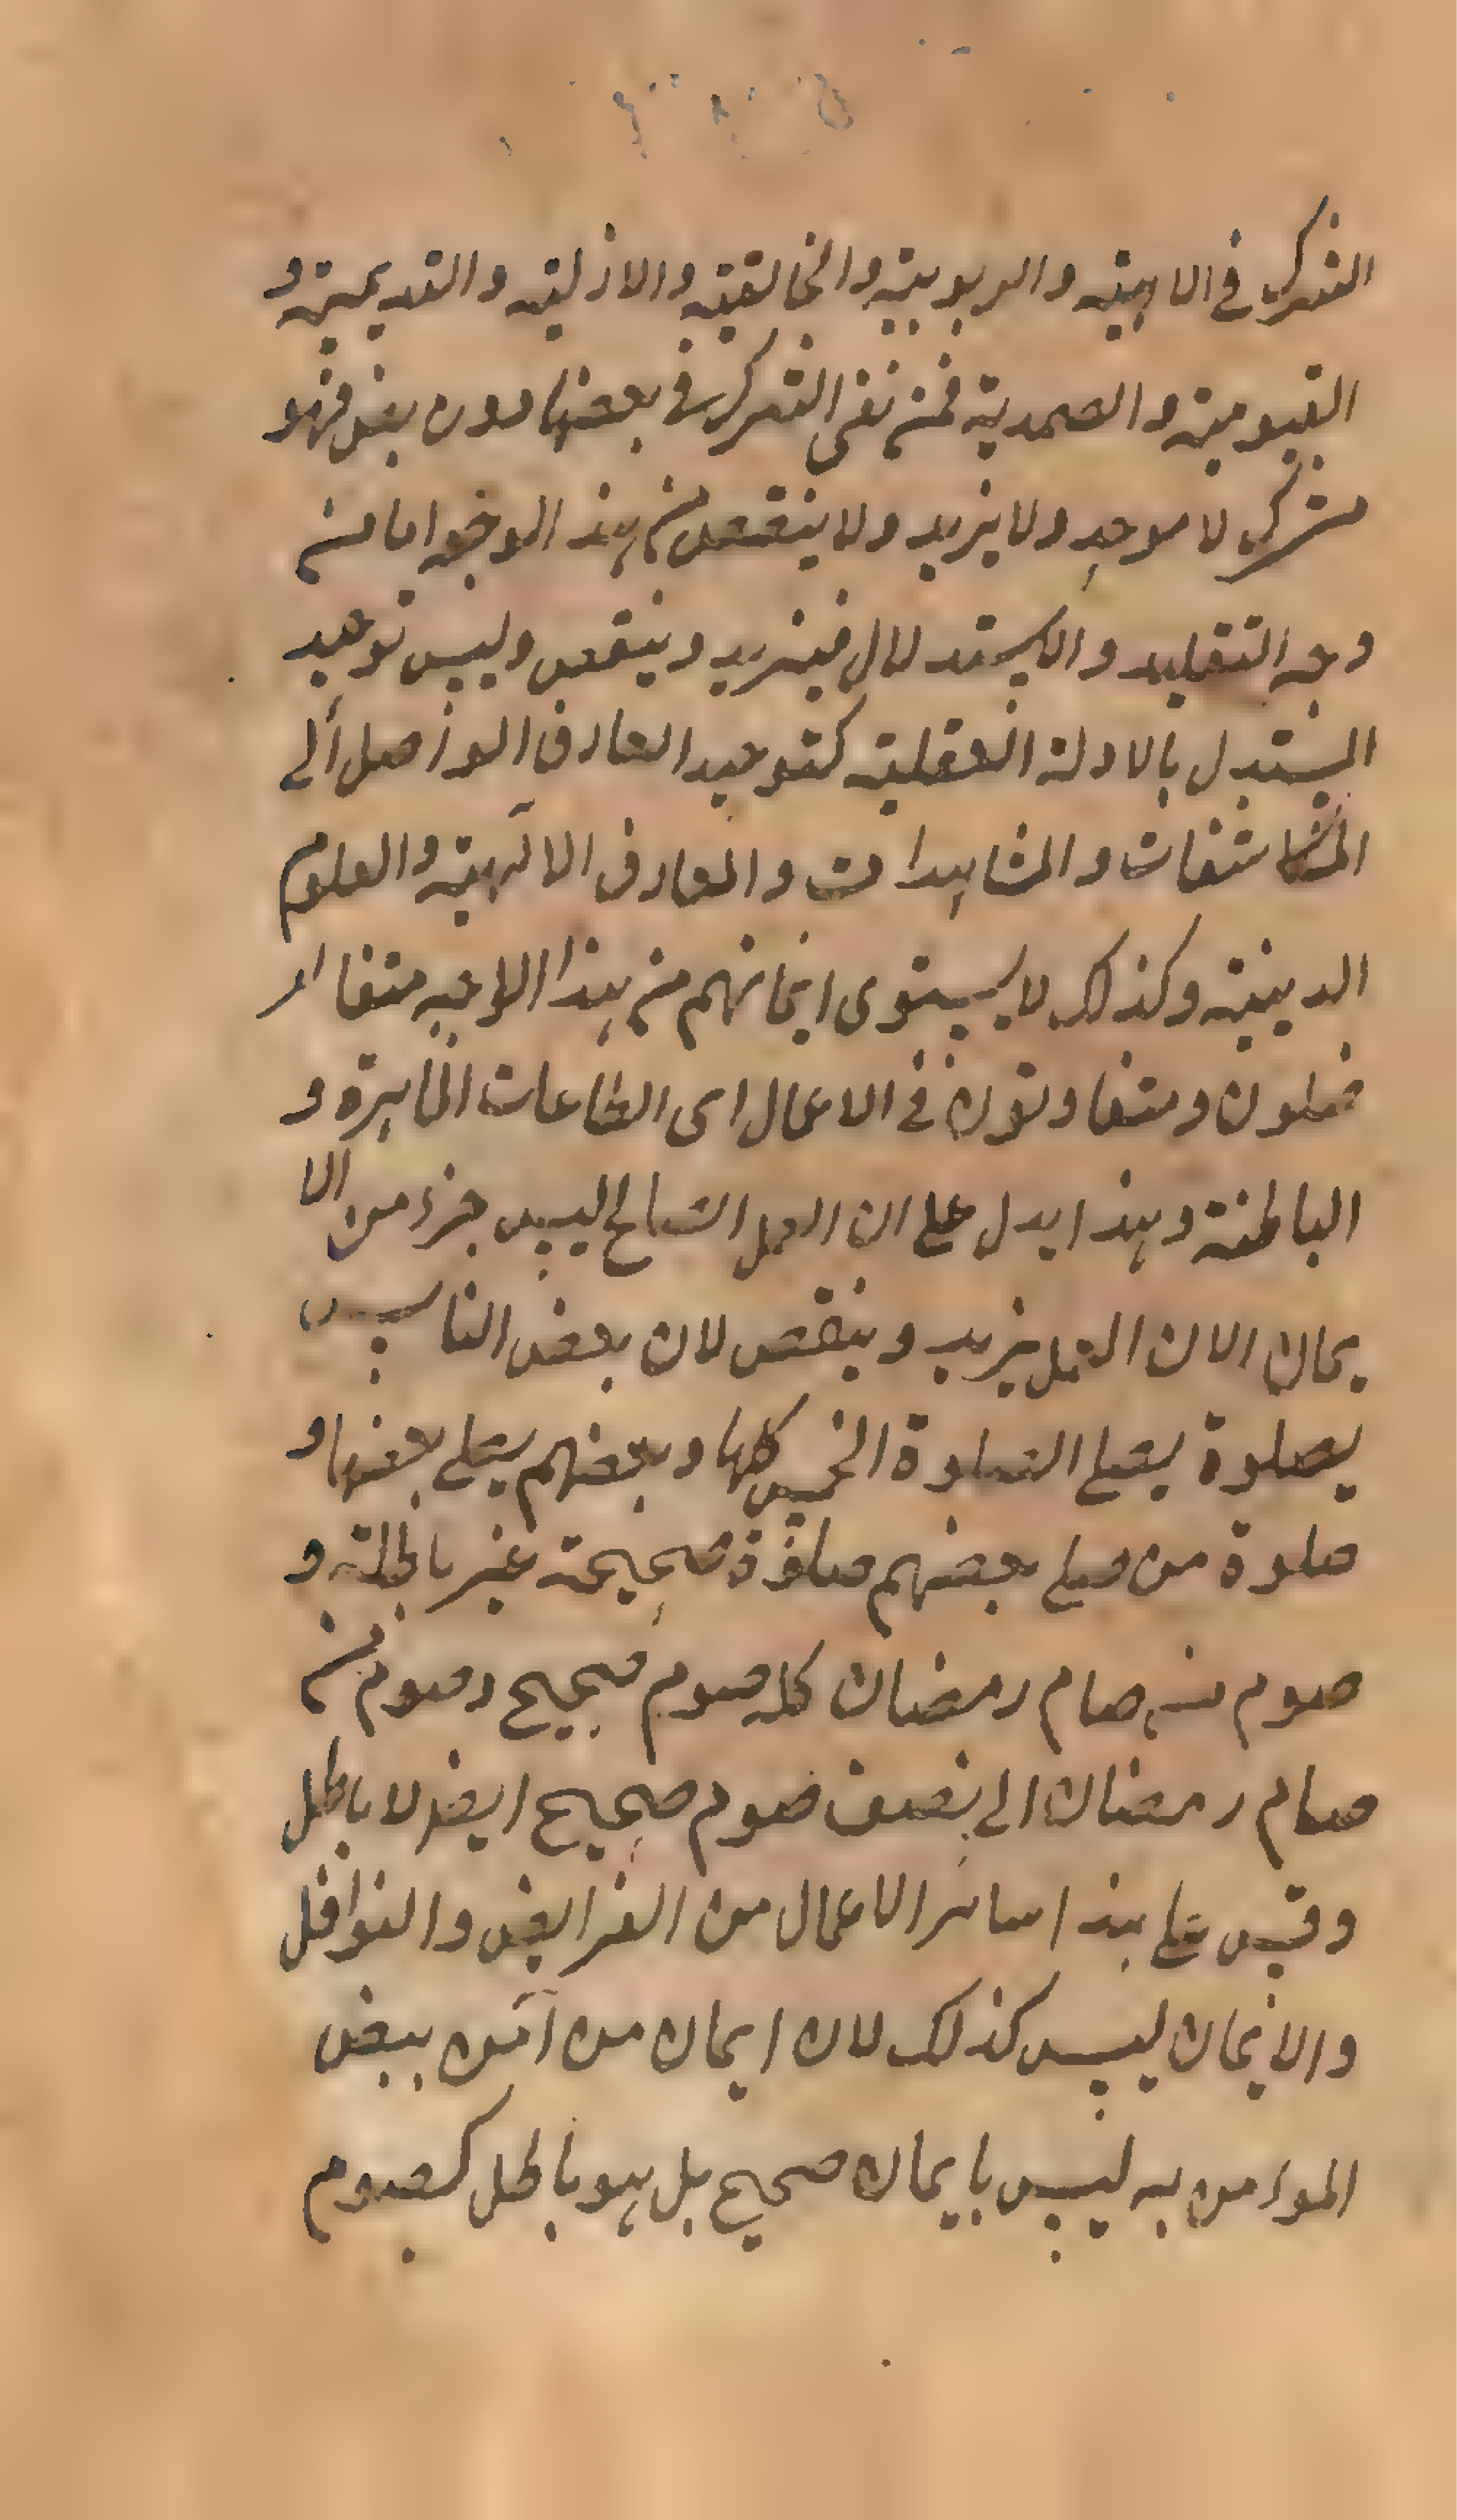 الشرك في الالهية والربوبية والخالقية والازلية والقديمية و
القيومية والصمدية فمن نفى الشرك في بعضها دون بعض فهو
مشرك لا موحد ولا يزيد ولا ينقص من هذا الوجه اما من
وجه التقليد والاستدلال فيزيد وينقص وليس توحيد
المستدل بالادلة العقلية كتوحيد العارف الواصل الى
المكاشفات والمشاهدات والمعارف الالهية والعلوم
الدينية وكذلك لا يستوى ايمانهم من هذا الاوجه متفا
ضلون ومتفاوتون في الاعمال اى الطاعات الظاهرة و
الباطنة وهذا يدل على ان العمل الصالح ليس جزء من الا
يمان الان العمل يزيد وينقص لان بعض الناس
يصلوة يصلى الصلوة الخمس كلها وبعضهم يصلى بعضها و
صلوة من صلى بعضهم صلوة صحيحة غير باطلة و
صوم من صام رمضان كله صوم صحيح وصوم من
صام رمضان الى نصف صوم صحيح ايضا لا باطل
وقس على هذا سائر الاعمال من الفرايض والنوافل
والايمان ليس كذلك لان ايمان من آمن ببعض
المؤمن به ليس بايمان صحيح بل هو باطل كصوم